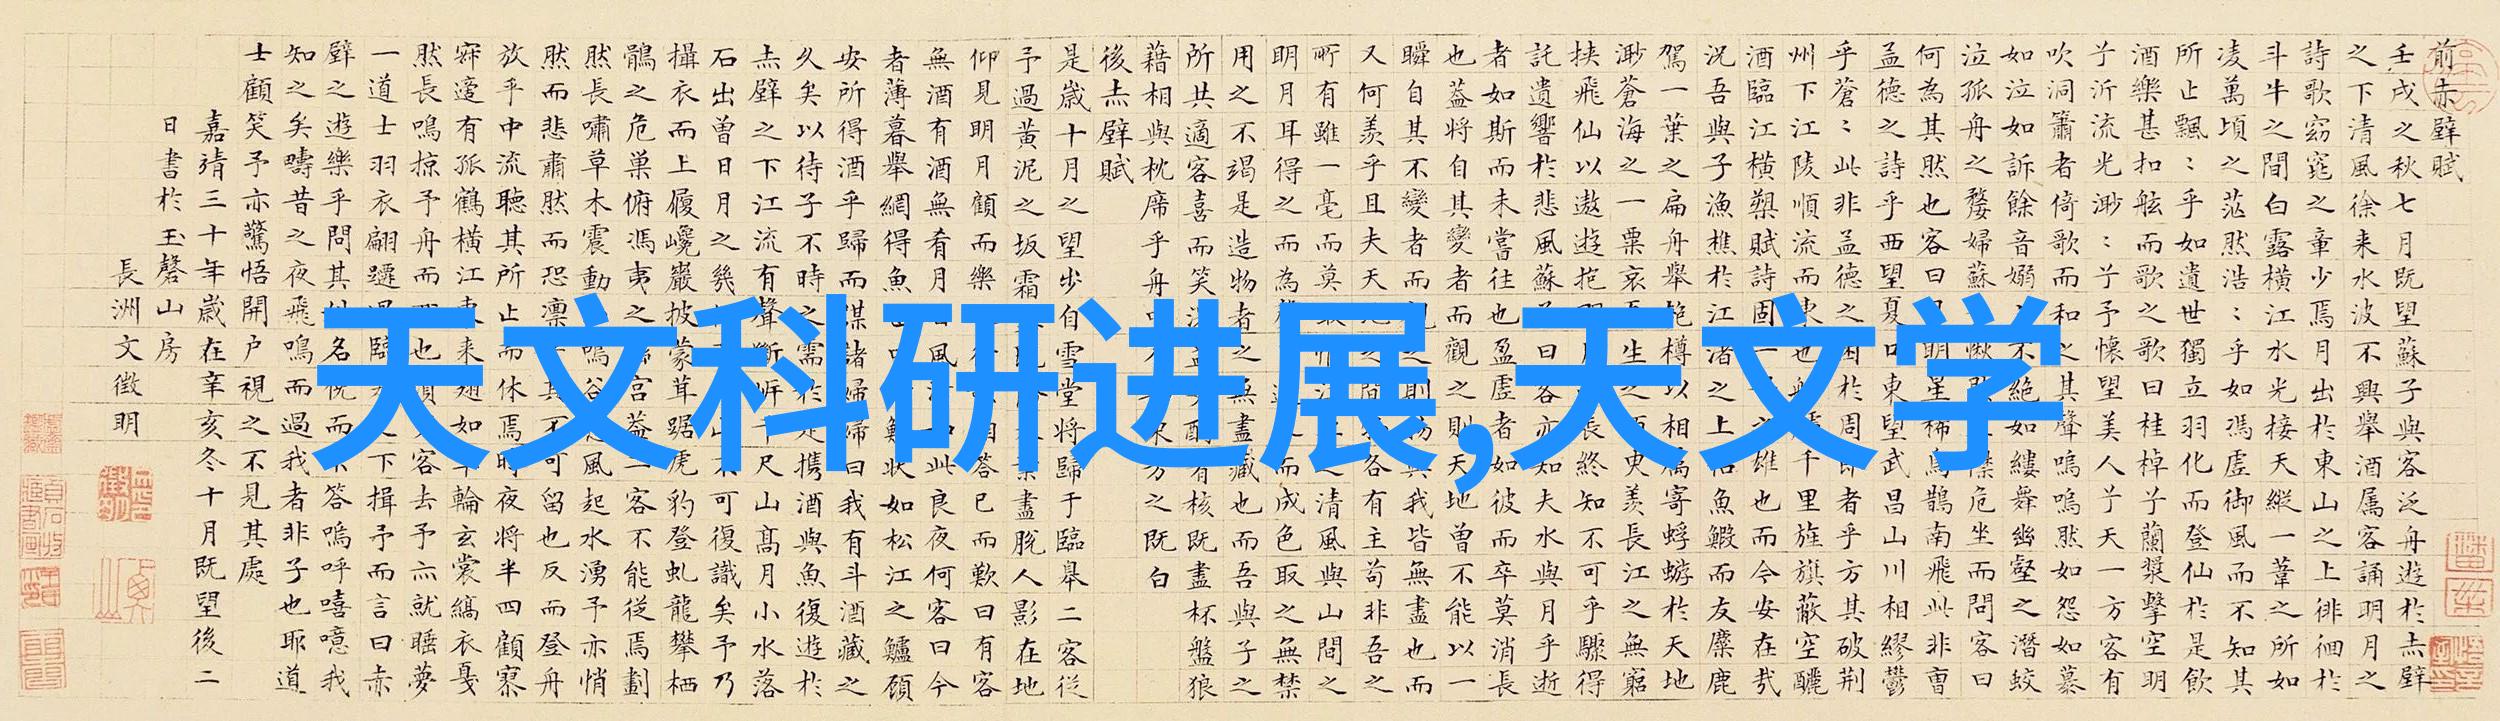 前赤壁賦
壬戌之秋七月既望蘇子與客泛舟遊於赤壁
之下清風徐来水波不興舉酒属客誦明月之
詩歌窈窕之章少焉月出於東山之上徘徊於
斗牛之間白露横江水光接天縱一葦之所如
凌萬頃之茫然浩〻乎如馮虛御風而不知其
所止飄〻乎如遺世獨立羽化而登仙於是飲
酒樂甚扣舷而歌之歌曰桂棹兮蘭槳擊空明
兮泝流光渺〻兮予懷望美人兮天一方客有
吹洞簫者倚歌而和之其聲嗚嗚然如怨如慕
如泣如訴餘音嫋〻不絶如縷舞幽壑之潛蛟
泣孤舟之嫠婦蘇愀危坐而問客曰
何為其然也客曰明星稀烏鵲南飛此非曹
孟德之詩乎西望夏口東望武昌山川相繆鬱
乎蒼〻此非孟德之困於周郎者乎方其破荆
州下江陵順流而東也舳千里旌旗蔽空釃
酒臨江横槊賦詩固一雄也而今安在哉
况吾與子漁樵於江渚之上魚鰕而友麋鹿
駕一葉之扁舟舉匏樽以相属寄蜉蝣於天地
渺蒼海之一粟哀生之臾羨長江之無窮
挟飛仙以遨遊抱長終知不可乎驟得
託遺響於悲風蘇曰客亦知夫水與月乎逝
者如斯而未嘗往也盈虛者如彼而卒莫消長
也蓋將自其變者而觀之則天地曾不能以一
瞬自其不變者而則物與我皆無盡也而
又何羨乎且夫天之間各有主苟非吾之
所有雖一毫而莫之清風與山間之
明月耳得之而為而成色取之無禁
用之不竭是造物者之無盡藏也而吾與子之
所共適客喜而笑有核既盡杯盤狼
藉相與枕席乎舟方之既白
後赤壁賦
是歲十月之望步自雪堂將歸于臨皋二客從
予過黄泥之坂霜盡脱人影在地
仰見明月顧而樂答已而歎曰有客
無酒有酒無肴月風此良夜何客曰今
者薄暮舉網得魚鱗狀如松江之鱸顧
安所得酒乎歸而謀諸婦婦曰我有斗酒藏之
久矣以待子不時之需於是攜酒與魚復遊於
赤壁之下江流有聲斷岍千尺山髙月小水落
石出曾日月之幾可復識矣予乃
攝衣而上履巉巖披蒙茸踞虎豹登虬龍攀栖
鶻之危巢俯馮夷之宫蓋二客不能從焉劃
然長嘯草木震動鳴谷風起水湧予亦悄
然而悲肅然而恐凛其不可留也反而登舟
放乎中流聽其所止而休焉時夜將半四顧寥
寂適有孤鶴横江東来翅如車輪玄裳縞衣戛
然長鳴掠予舟而也客去予亦就睡夢
一道士羽衣翩躚過臨之下揖予而言曰赤
壁之遊樂乎問其姓名俛而答嗚呼噫嘻我
知之矣疇昔之夜飛鳴而過我者非子也耶道
士顧笑予亦驚悟開户視之不見其處
嘉靖三十年歲在辛亥冬十月既望後二
日書於玉磬山房
長洲文徵明
天文科研进展,天文学